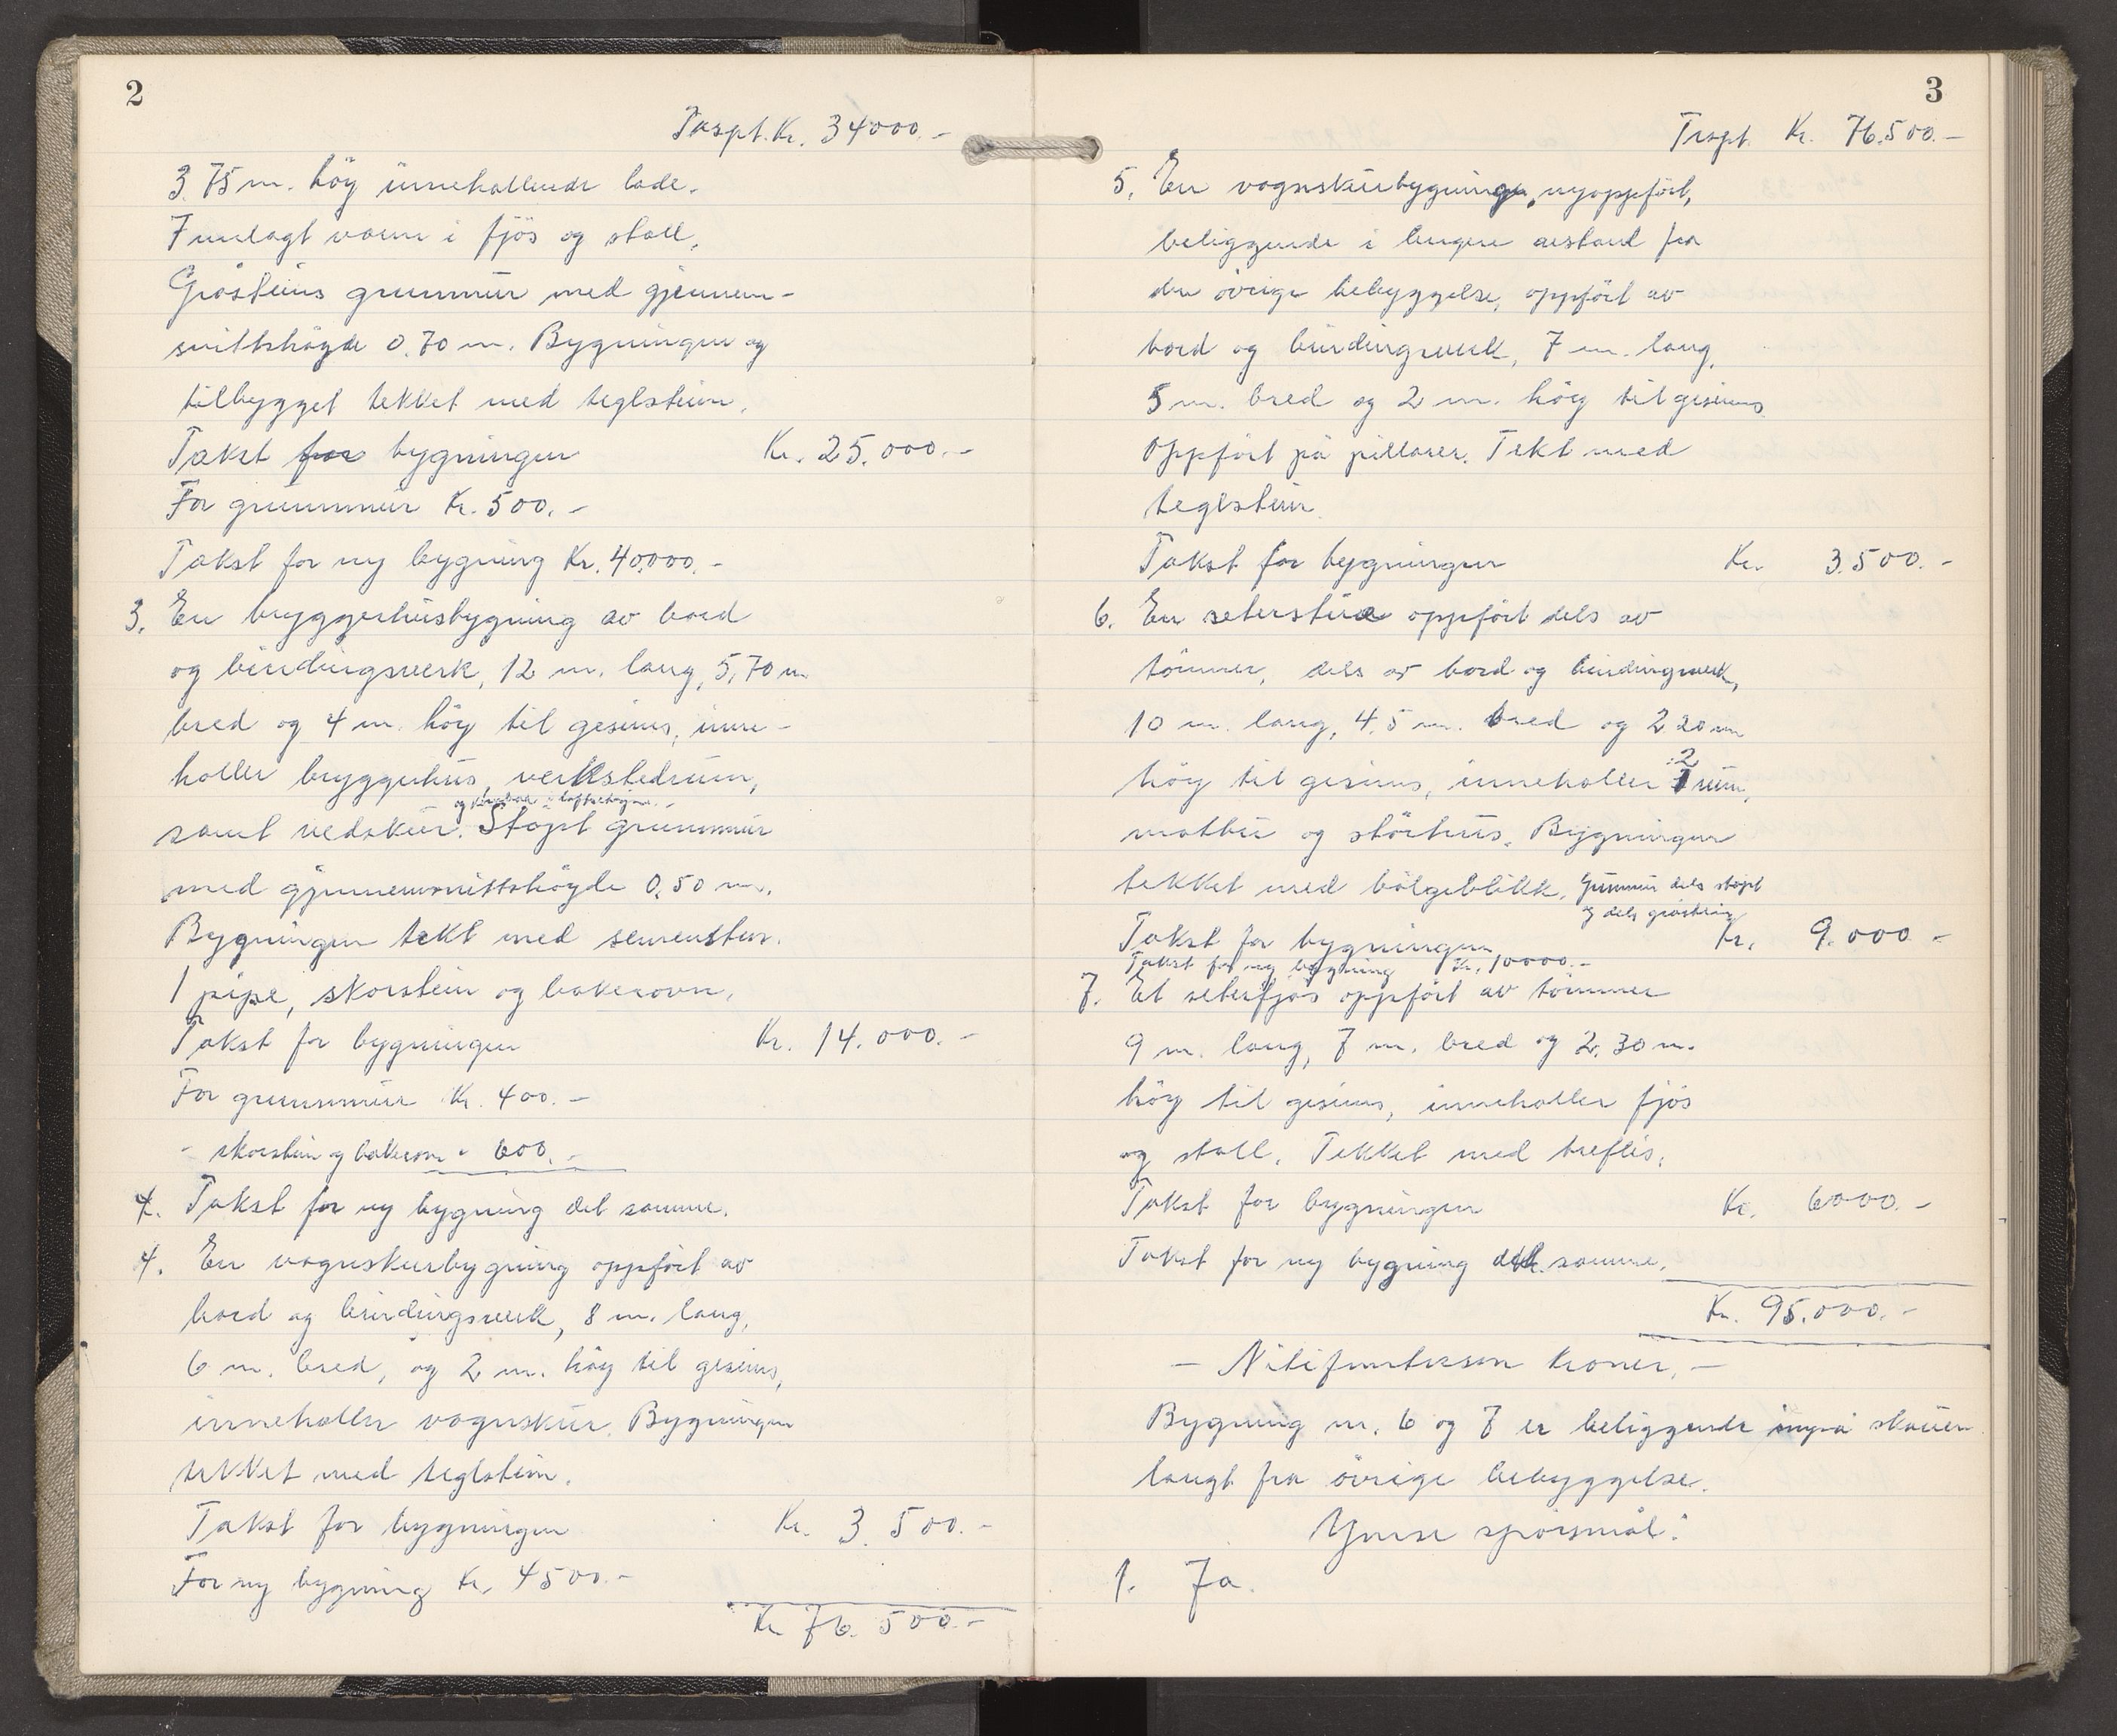 2
Trspt. Kr. 34000.-
3.75 m. höy inneholdende lade.
Innlagt vann i fjös og stall.
Gråsteins grunnmur med gjennem-
snittshöyde 0.70 m. Bygningen og
tilbygget tekket med teglstein.
Takst for bygningen Kr. 25.000.-
For grunnmur Kr. 500.-
Takst for ny bygning Kr. 40.000.-
3. En bryggerhusbygning av bord
og bindingsverk, 12 m. lang, 5,70 m
bred og 4 m. höy til gesims, inne-
holder bryggerhus, verkstedrum,
og i loftsetasjen.-
samt vedskur. Støpt grunnmur
med gjennemsnittshöyde 0,50 m.
Bygningen tekt med sementsten.
1 pipe, skorstein og bakerovn.
Takst for bygningen Kr. 14.000.-
For grunnmur Kr. 400.-
" skorstein og bakerovn " 600.-
4. Takst for ny bygning det samme.
4. En vognskurbygning oppfört av
bord og bindingsverk, 8 m. lang,
6 m. bred, og 2 m. höy til gesims,
inneholder vognskur. Bygningen
tekket med teglstein.
Takst for bygningen Kr. 3.500.-
For ny bygning Kr. 4500.-
Kr. 76.500.-
3
Trspt. Kr. 76.500.-
5. En vognskurbygning, nyoppfört,
beliggende i lengere avstand fra
den övrige bebyggelse, oppfört av
bord og bindingsverk, 7 m. lang,
5 m. bred og 2 m. höy til gesims.
Oppfört på pillarer. Tekt med
teglstein.
Takst for bygningen Kr. 3.500.-
6. En seterstue oppfört dels av
tömmer, dels av bord og bindingsverk,
10 m. lang, 4,5 m. bred og 2.20 m
höy til gesims, inneholder 2 rum,
matbu og störhus. Bygningen
tekket med bölgeblikk. Grunnmur dels støpt
og dels gråstein
Takst for bygningen Kr. 9.000.-
Takst for ny bygning Kr. 10000.-
7. Et seterfjös oppfört av tömmer
9 m. lang, 7 m. bred og 2.30 m.
höy til gesims, inneholder fjös
og stall. Tekket med treflis.
Takst for bygningen Kr. 6000.-
Takst for ny bygning det samme.
Kr. 95.000.-
- Nitifemtusen kroner.-
Bygning nr. 6 og 7 er beliggende innpå skauen
langt fra övrige bebyggelse.
Ymse spörsmål:
1. Ja.